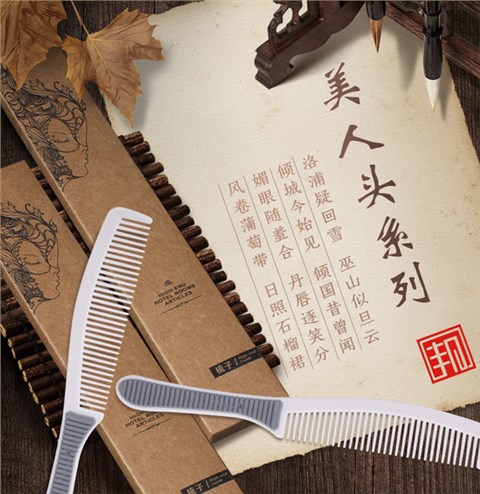 美人头系列
洛浦疑回雪 巫山似旦云
倾城今始见 倾国昔曾闻
媚眼随羞合 丹唇逐笑分
风卷蒲萄带 日照石榴裙
HIGH-END
HOTEL ROOMS
ARTICLES
梳子
HIGH-END
HOTEL ROOMS
ARTICLES
梳子